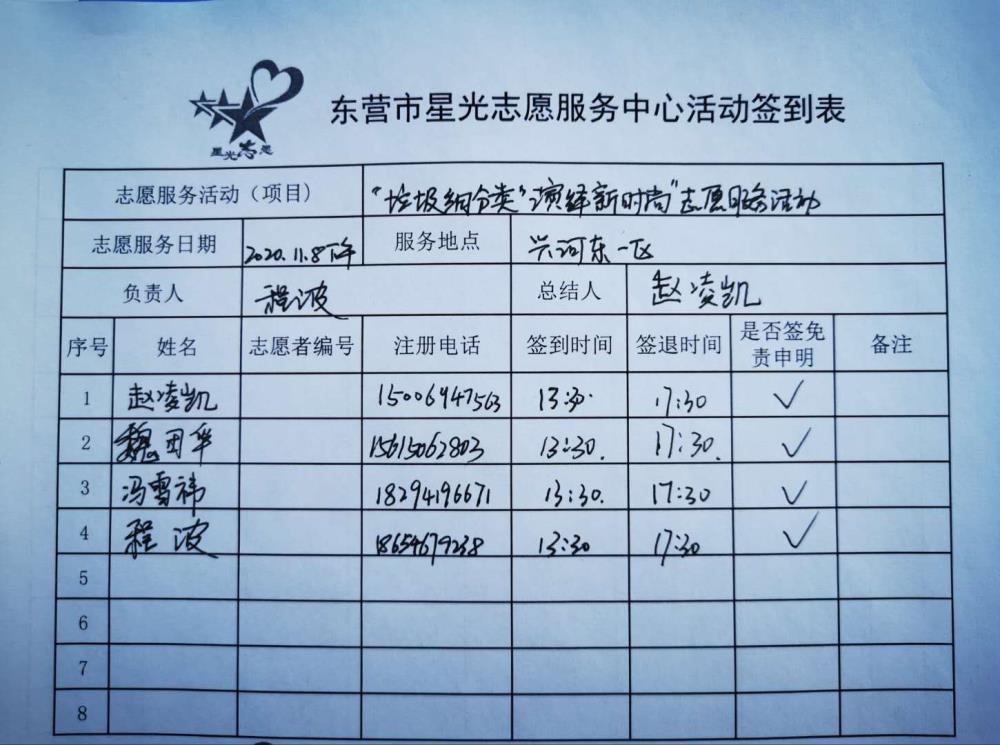 星光志愿
东营市星光志愿服务中心活动签到表
志愿服务活动（项目） “垃圾细分类”演绎新时尚”志愿服务活动
志愿服务日期 2020.11.8下午 服务地点 兴河东一区
负责人 程波 总结人 赵凌凯
序号 姓名 志愿者编号 注册电话 签到时间 签退时间 是否签免责申明 备注
1 赵凌凯 15006947563 13:30 17:30 ✓
2 魏国华 15615062803 13:30. 17:30. ✓
3 冯雪祎 18294196671 13:30. 17:30 ✓
4 程波 18654679238 13:30 17:30 ✓
5
6
7
8